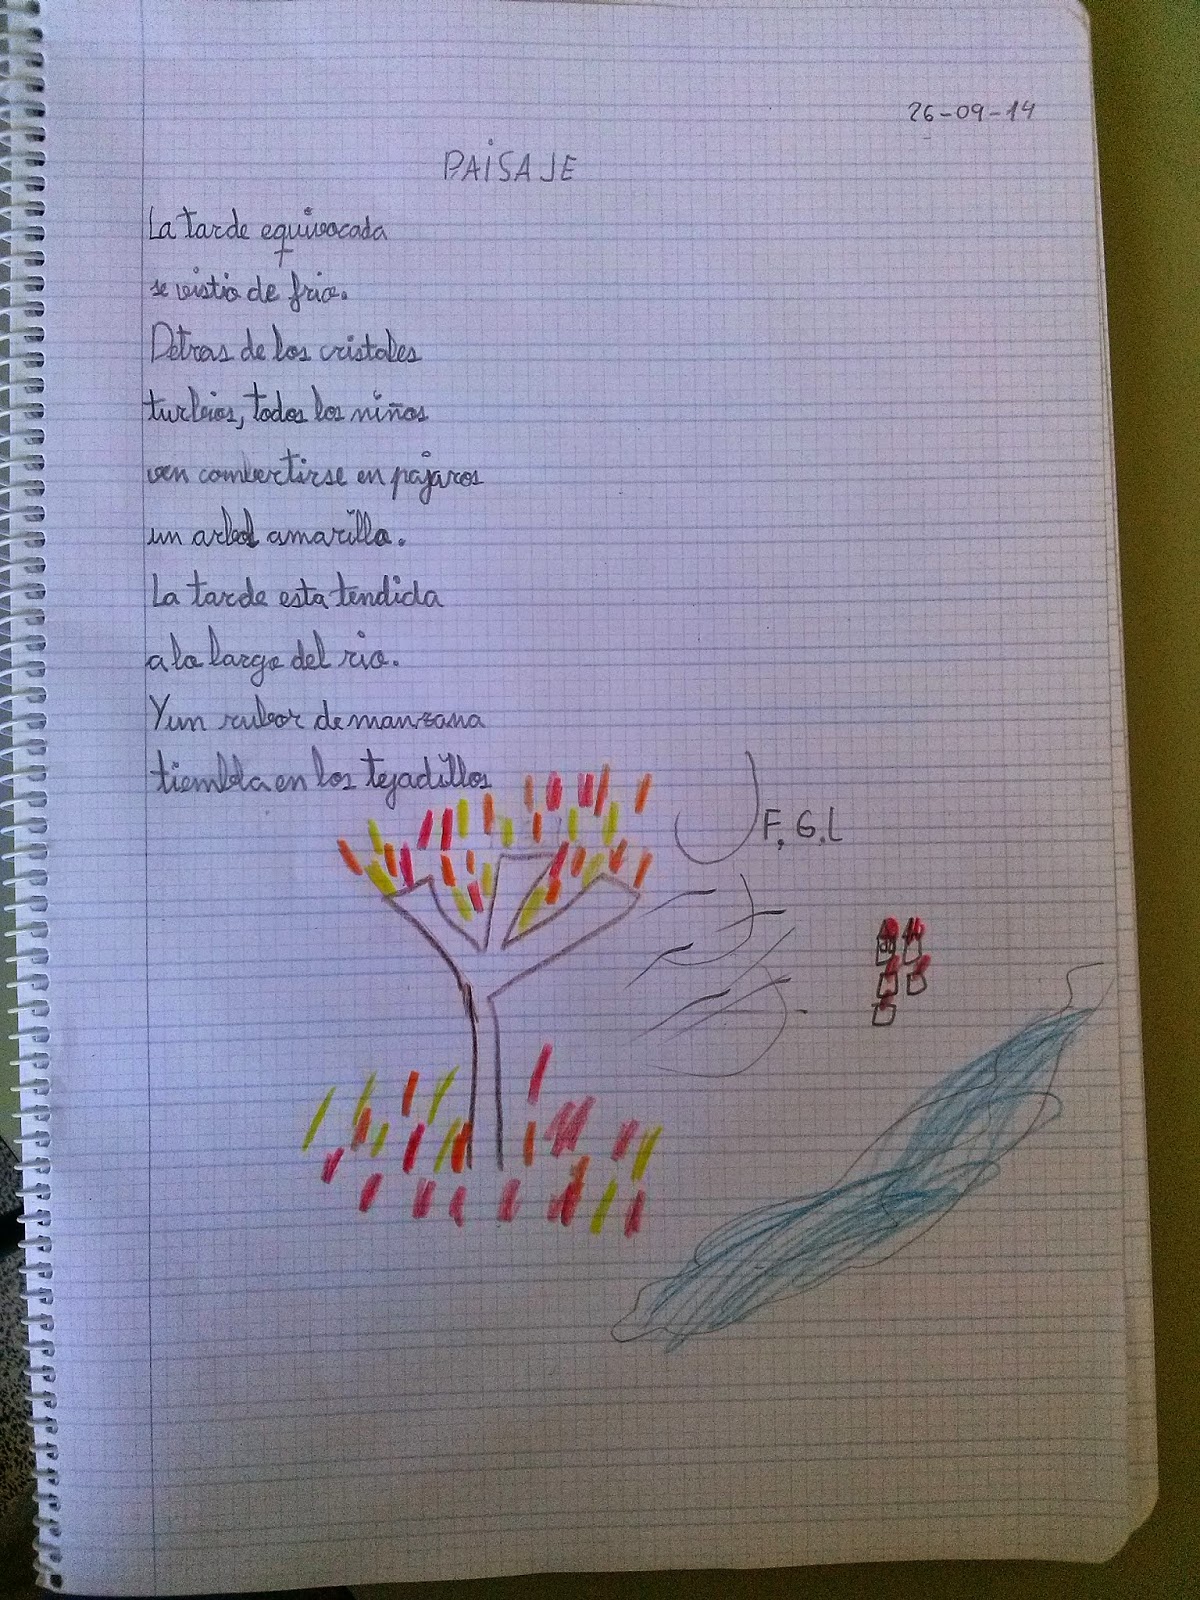 26-09-14
PAISAJE
La tarde equivocada
se vistio de frio.
Detras de los cristales
turbios, todos los niños
ven combertirse en pajaros
un arbol amarillo.
La tarde esta tendida
a lo largo del rio.
Y un rubor de manzana
tiembla en los tejadillos
F. G. L